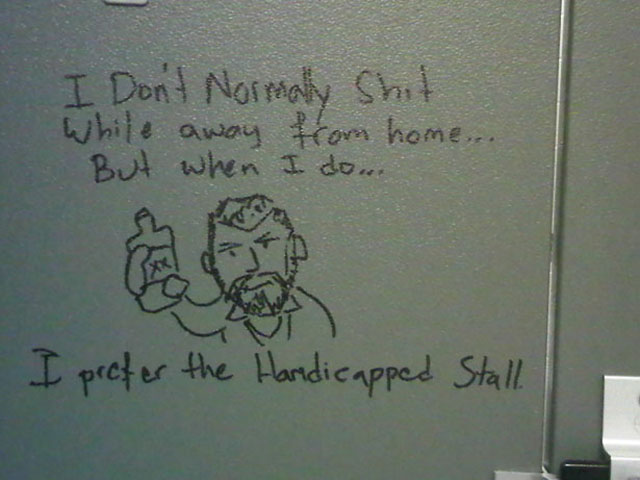 I Don't Normally Shit
While away from home...
But when I do...
XX
I prefer the Handicapped Stall.